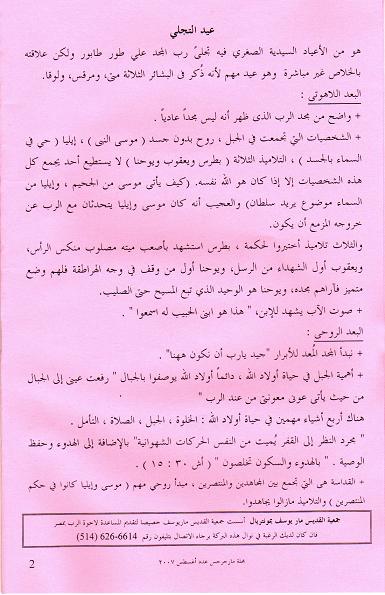 عيد التجلي
هو من الأعياد السيدية الصغري فيه تجلىَ رب المجد علي طور طابور ولكن علاقته
بالخلاص غير مباشرة وهو عيد مهم لأنه ذُكر فى البشائر الثلاثة متى، ومرقس، ولوقا.
البعد اللاهوتى :
+ واضح من مجد الرب الذى ظهر أنه ليس مجداً عادياً .
+ الشخصيات التي تجمعت في الجبل ، روح بدون جسد ( موسى النبى ) ، إيليا ( حي في
السماء بالجسد ) ، التلاميذ الثلاثة ( بطرس ويعقوب ويوحنا ) لا يستطيع أحد يجمع كل
هذه الشخصيات إلا إذا كان هو الله نفسه. (كيف يأتى موسى من الجحيم ، وإيليا من
السماء موضوع يريد سلطان) والعجيب أنه كان موسى وإيليا يتحدثان مع الرب عن
خروجه المزمع أن يكون.
والثلاث تلاميذ أختيروا لحكمة ، بطرس استشهد بأصعب ميته مصلوب منكس الرأس،
ويعقوب أول الشهداء من الرسل، ويوحنا أول من وقف في وجه الهراطقة فلهم وضع
متميز فأراهم مجده، ويوحنا هو الوحيد الذي تبع المسيح حتى الصليب.
+ صوت الآب يشهد للإبن، " هذا هو ابنى الحبيب له اسمعوا " .
البعد الروحى :
+ نبدأ المجد المُعد للأبرار "جيد يارب أن نكون ههنا" .
+ أهمية الجبل في حياة أولاد الله ، دائماً أولاد الله يوصفوا بالجبال " رفعت عينى إلى الجبال
من حيث يأتى عونى معونتي من عند الرب "
هناك أربع أشياء مهمين في حياة أولاد الله : الخلوة ، الجبل ، الصلاة ، التأمل .
" مجرد النظر إلى القفر يُميت من النفس الحركات الشهوانية" بالإضافة إلى الهدوء وحفظ
الوصية . " بالهدوء والسكون تخلصون " ( أش ٣٠ : ١٥ ) .
+ القداسة هى التي تجمع بين المجاهدين والمنتصرين ، مبدأ روحي مهم ( موسى وإيليا كانوا في حكم
المنتصرين ) والتلاميذ مازالوا يجاهدوا.
جمعية القديس مار يوسف بمونتريال أسست جمعية القديس ماريوسف خصيصا لتقديم المساعدة لاخوة الرب بمصر
فان كان لديك الرغبة في نوال هذه البركة برجاء الاتصال بتليفون رقم 626-6614 (514)
مجلة مارجرجس عدد أغسطس ٢٠٠٧
2